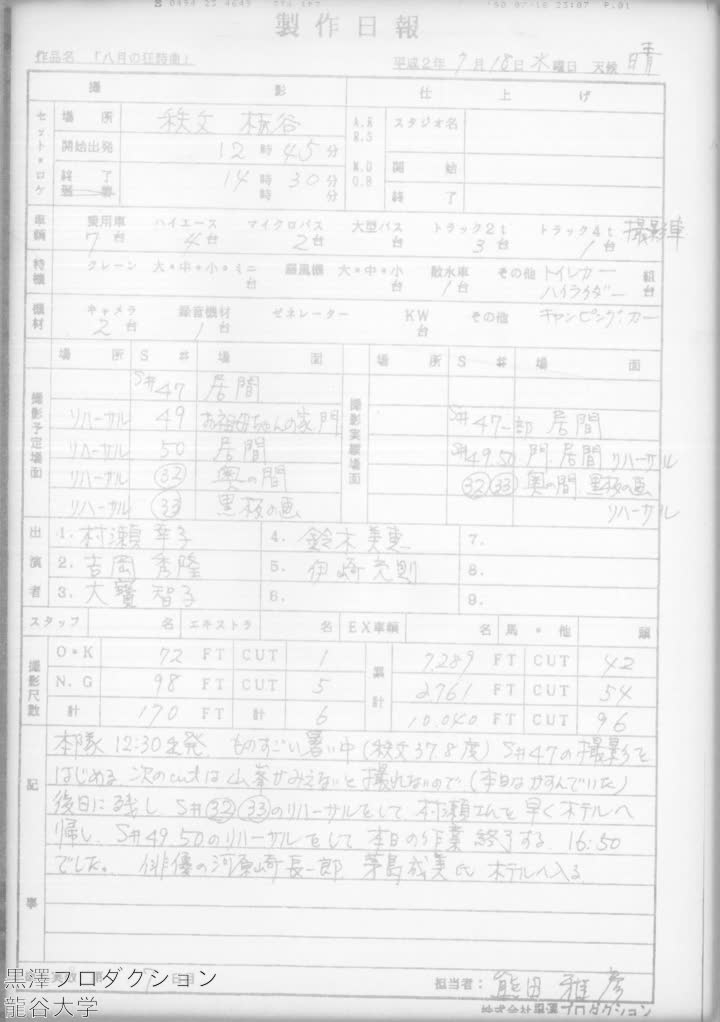 '90 07-18 23:07 P.01
製作日報
作品名 「八月の狂詩曲」 平成2年 7月18日 水曜日 天候 晴
撮影 仕上げ
セット・ロケ 場所 秩父 板谷 A.R R.S スタジオ名
開始出発 12時45分 M.O D.B 開始
終了 14時30分 終了
時 分
車輌 乗用車 ハイエース マイクロバス 大型バス トラック2t トラック4t 撮影車
7台 4台 2台 台 3台 1台
特機 クレーン 大・中・小・ミニ 扇風機 大・中・小 散水車 その他 トイレカー 組
台 台 1台 ハイライダー 台
機材 キャメラ 録音機材 ゼネレーター KW その他 キャンピングカー
2台 1台 台
撮影予定場面 場所 S# 場面 撮影実績場面 場所 S# 場面
S#47 居間
リハーサル 49 お祖母ちゃんの家門 S#47一部 居間
リハーサル 50 居間 S#49.50 門 居間 リハーサル
リハーサル ㉜ 奥の間 ㉜㉝ 奥の間 黒板の画
リハーサル ㉝ 黒板の画 リハーサル
出演者 1. 村瀬 幸子 4. 鈴木美恵 7.
2. 吉岡 秀隆 5. 伊崎充則 8.
3. 大寶 智子 6. 9.
スタッフ 名 エキストラ 名 EX車輌 名 馬・他 頭
撮影尺数 O・K 72 FT CUT 1 累計 7289 FT CUT 42
N.G 98 FT CUT 5 2761 FT CUT 54
計 170 FT 計 6 10,040 FT CUT 96
記事
本隊 12:30出発 ものすごい暑い中(秩父37.8度) S#47の撮影を
はじめる 次のcutは山峯がみえないと撮れないので(本日はかすんでいた)
後日に残し S#㉜㉝のリハーサルをして 村瀬さんを早くホテルへ
帰し、S#49.50のリハーサルをして本日の作業終了する 16:50
でした。 俳優の河原崎長一郎 茅島成美氏 ホテルへ入る
日目
担当者: 熊田 雅彦
株式会社黒澤プロダクション
黒澤プロダクション
龍谷大学